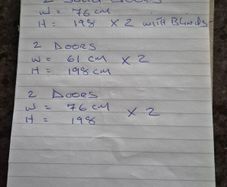 2 Solid Doors
W = 76 cm
H = 198 X 2 with Blinds-
2 Doors
W = 61 cm X 2
H = 198cm
2 Doors
W = 76 cm X 2
H = 198